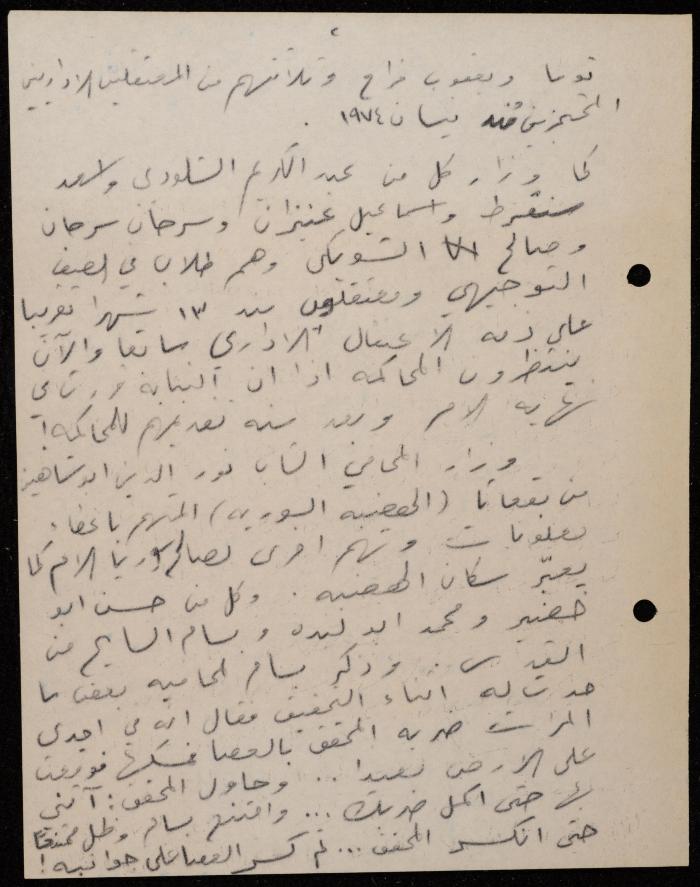 ٢
توما ويعقوب فراج وثلاثتهم من المعتقلين الاداريين
المحتجزين منذ نيسان ١٩٧٤ .
كما وزار كل من عبد الكريم الشلودي ولاسعد
سنقرط واسماعيل عنيزان وسرحان سرحان
وصالح الشويكي وهم طلاب في الصف
التوجيهي ومعتقلون منذ ١٣ شهرا تقريبا
على ذمة الاعتقال الاداري سابقا والآن
ينتظرون المحاكمة اذ ان النيابة قررت في
نهاية الامر وبعد سنة تقديمهم للمحاكمة!
وزار المحامي الشاب نور الدين ابو شاهين
من بقعاثا (الهضبة السورية) المتهم باعطاء
معلومات وتهم اخرى لصالح سوريا الام كما
يعبّر سكان الهضبة . وكل من حسن ابو
خضير ومحمد ابو لبده وبسام السايح من
القدس . وذكر بسام لمحاميه بعض ما
حدث له اثناء التحقيق فقال انه في احدى
المرات ضربه المحقق بالعصا فمسكها فوقعت
على الارض بعيدا .. وحاول المحقق : آتني
بها حتى اكمل ضربك ... وامتنع بسام وظل ممتنعا
حتى انكسر المحقق ... ثم كسر العصا على جوانبه !